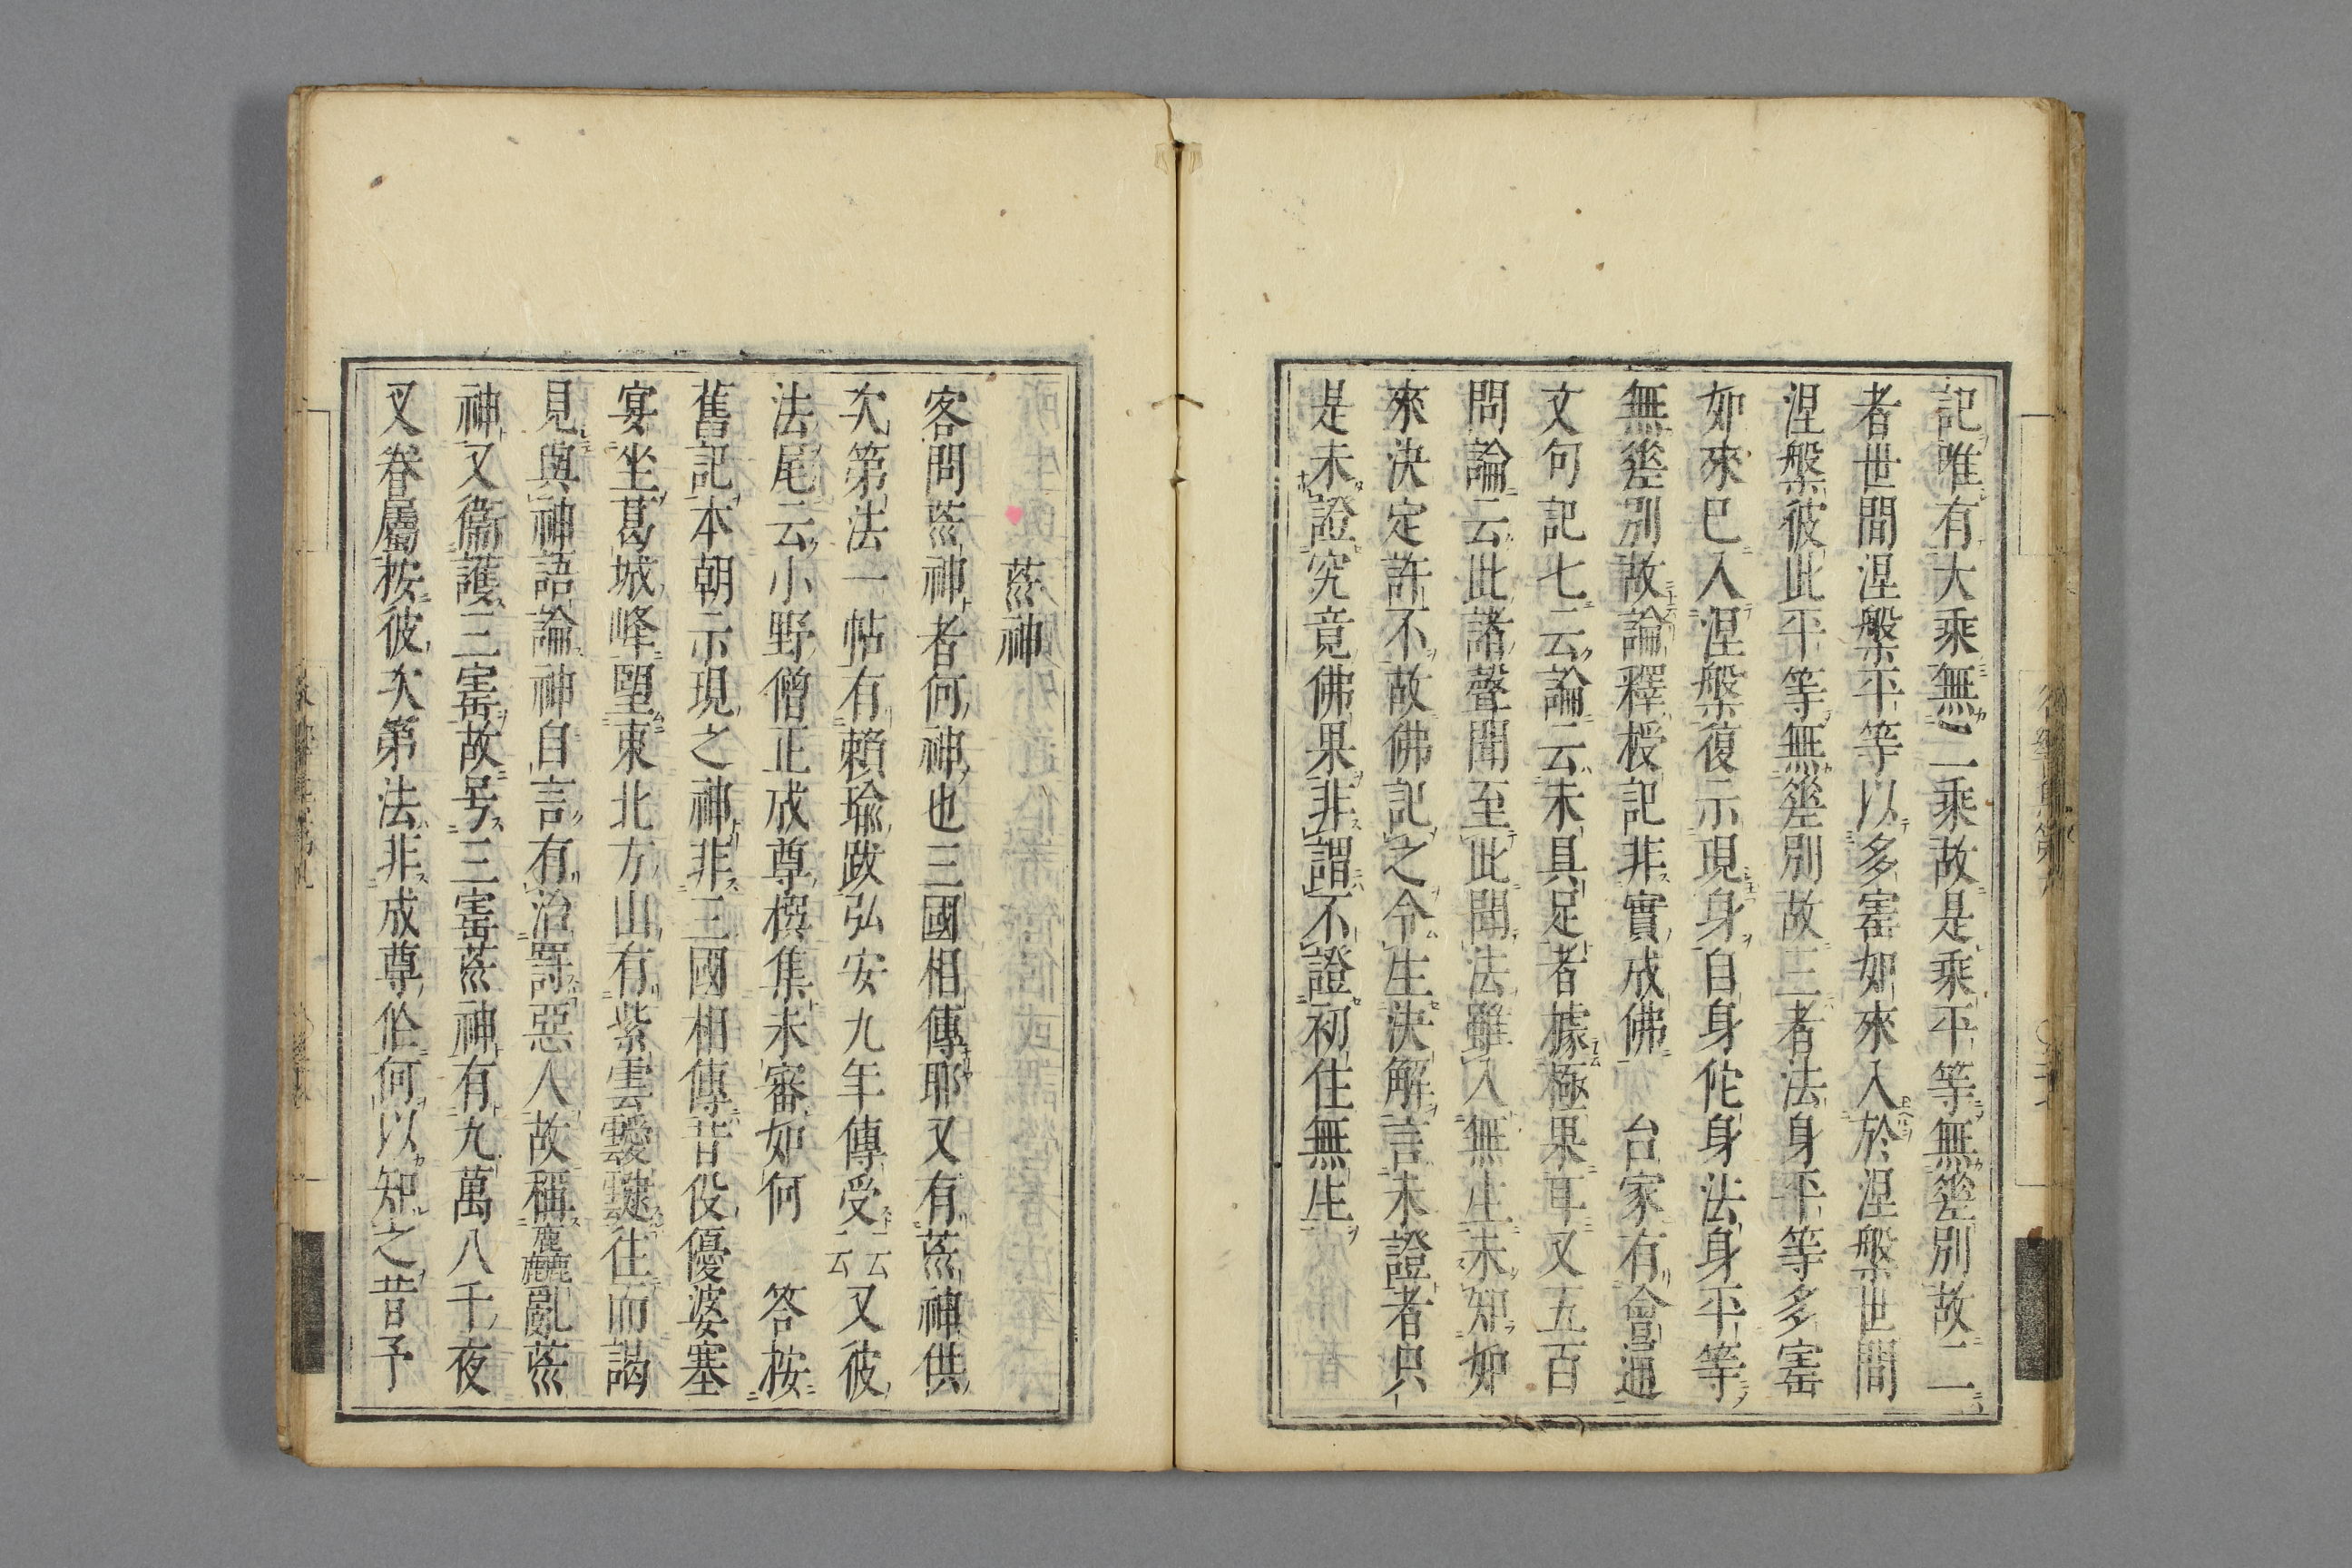 記唯有大乘無二乘故是乘平等無差別故二
者世間涅槃平等以多寳如來入於涅槃世間
涅槃彼此平等無差別故三者法身平等多寳
如來已入涅槃復示現身自身佗身法身平等
無差別故論釋授記非實成佛 台家有會通
文句記七云論云未具足者據極果耳又五百
問論云此諸聲聞至此聞法雖入無生未知如
來決定許不故佛記之令生決解言未證者只
是未證究竟佛果非謂不證初住無生
荒神
客問荒神者何神也三國相傳耶又有荒神供
次第法一帖有賴瑜跋弘安九年傳受云云又彼
法尾云小野僧正成尊撰集未審如何 答按
舊記本朝示現之神非三國相傳昔役優婆塞
宴坐葛城峰望東北方山有紫雲靉靆往而謁
見與神語論神自言有治罸惡人故稱麤亂荒
神又衞護三寳故号三寳荒神有九萬八千夜
叉眷屬按彼次第法非成尊作何以知之昔予